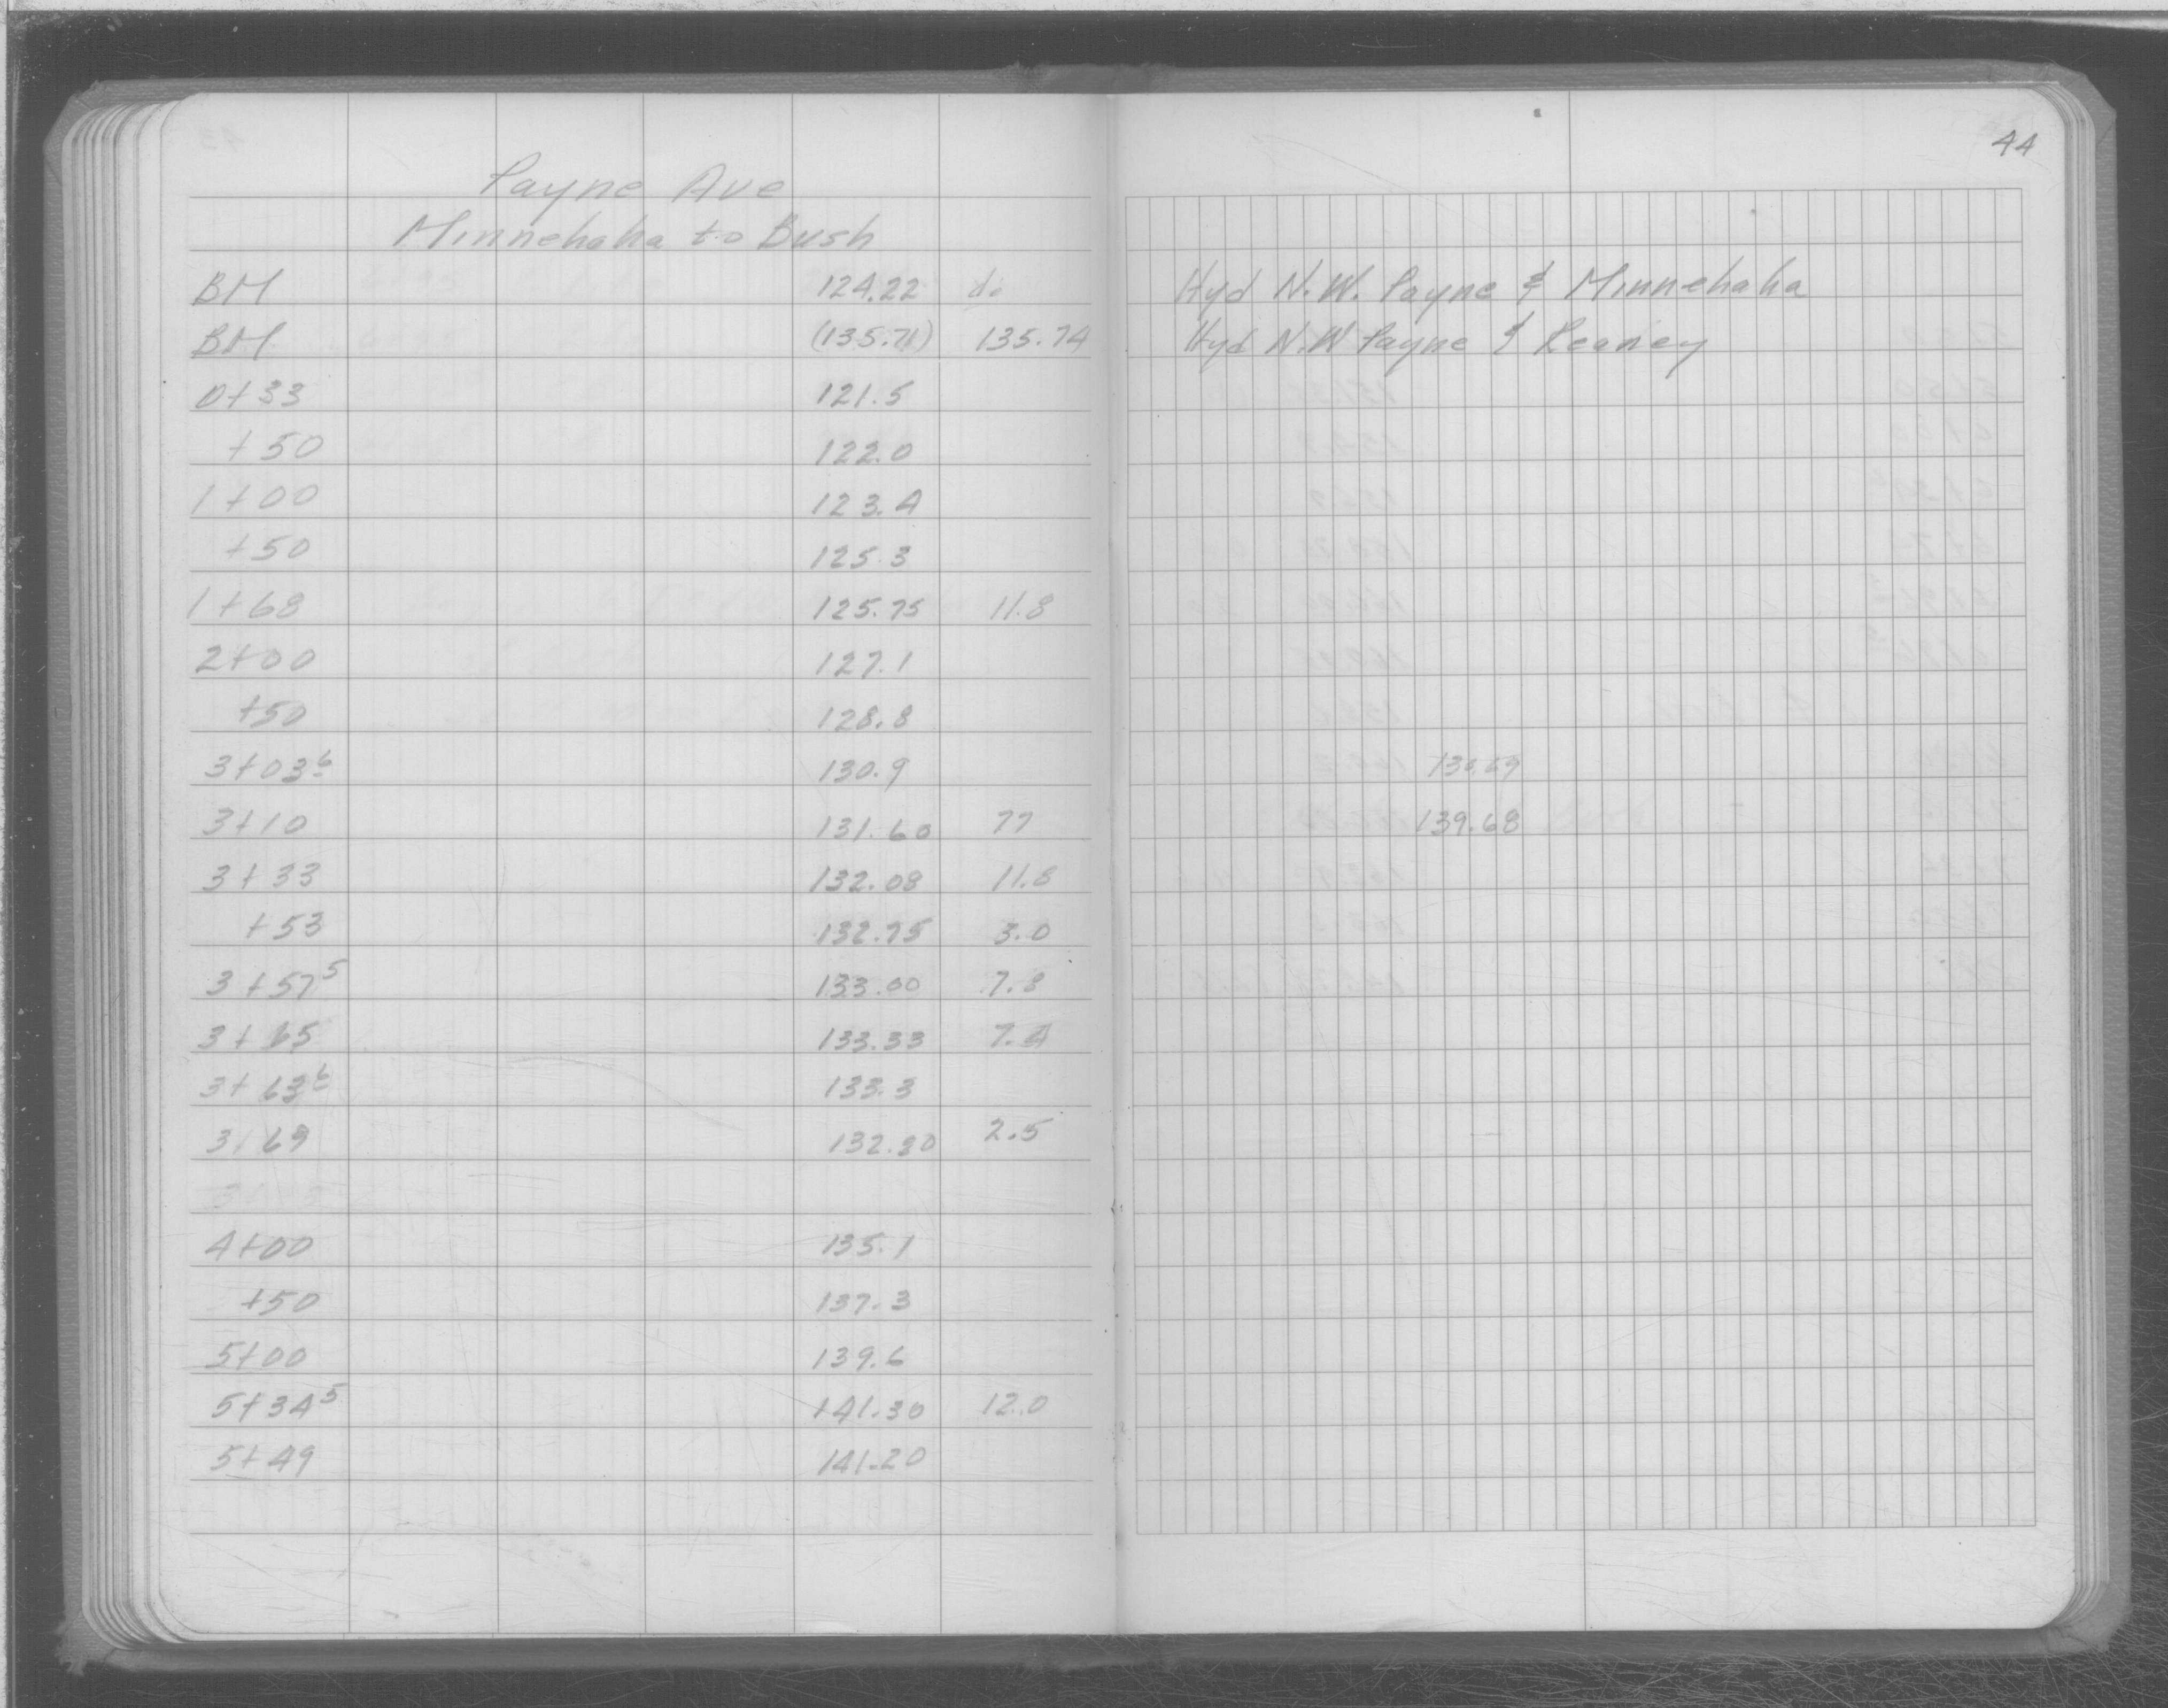 44
Payne Ave
Minnehaha to Bush
BM 124.22 do Hyd N.W. Payne & Minnehaha
BM (135.71) 135.74 Hyd N.W Payne & Reaney
0+33 121.5
+50 122.0
1+00 123.4
+50 125.3
1+68 125.75 11.8
2+00 127.1
+50 128.8
3+03⁶ 130.9
3+10 131.60 77 139.68
3+33 132.08 11.8
+53 132.75 3.0
3+57⁵ 133.00 7.8
3+65 133.33 7.4
3+63⁶ 133.3
3+69 132.80 2.5
4+00 135.1
+50 137.3
5+00 139.6
5+34⁵ 141.30 12.0
5+49 141.20